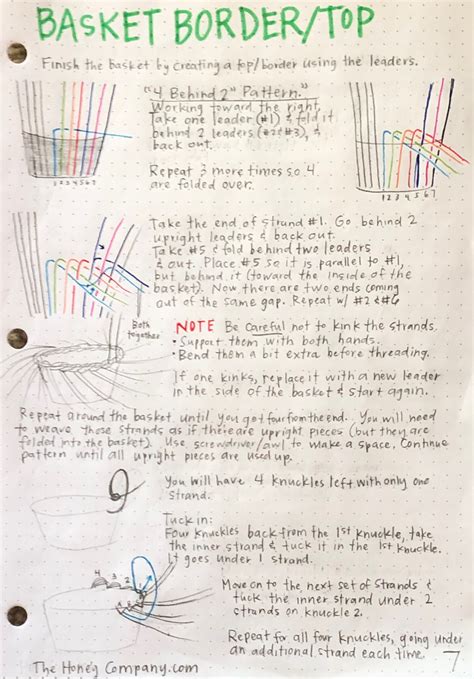 BASKET BORDER/TOP
Finish the basket by creating a top/border using the leaders.
"4 Behind 2" Pattern."
Working toward the right,
Take one leader (#1) & fold it
behind 2 leaders (#2&#3), &
back out.
Repeat 3 more times so 4
are folded over.
1 2 3 4 5 6 7
1 2 3 4 5 6 7
Take the end of strand #1. Go behind 2
upright leaders & back out.
Take #5 & fold behind two leaders
& out. Place #5 so it is parallel to #1,
but behind it (toward the inside of the
basket). Now there are two ends coming
out of the same gap. Repeat w/ #2 & #6
1 2 3 4 5 6 7
Both
together
NOTE Be Careful not to kink the strands.
• Support them with both hands.
• Bend them a bit extra before threading.
If one kinks, replace it with a new leader
in the side of the basket & start again.
Repeat around the basket until you get four from the end. You will need
to weave these strands as if there are upright pieces (but they are
folded into the basket). Use screwdriver/awl to make a space. Continue
pattern until all upright pieces are used up.
You will have 4 knuckles left with only one
strand.
Tuck in:
Four knuckles back from the 1st knuckle, take
the inner strand & tuck it in the 1st knuckle.
It goes under 1 strand.
4 3 2 1
Move on to the next set of strands &
tuck the inner strand under 2
strands on knuckle 2.
Repeat for all four knuckles, going under
an additional strand each time.
The Honey Company.com
7